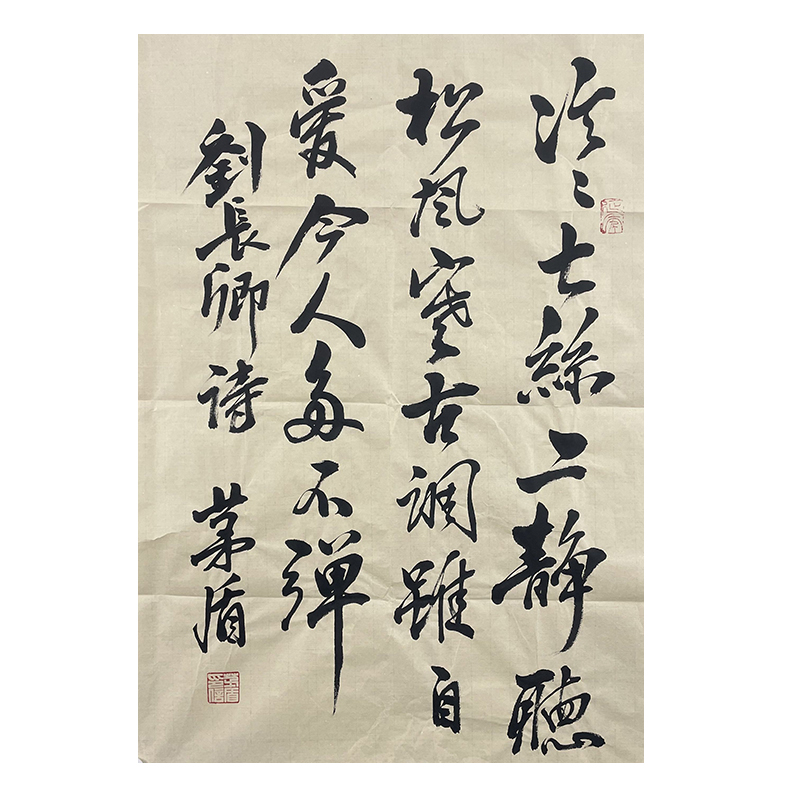 泠〻七絲上靜聽
松风寒古调雖自
愛今人多不弹
劉長卿诗 茅盾